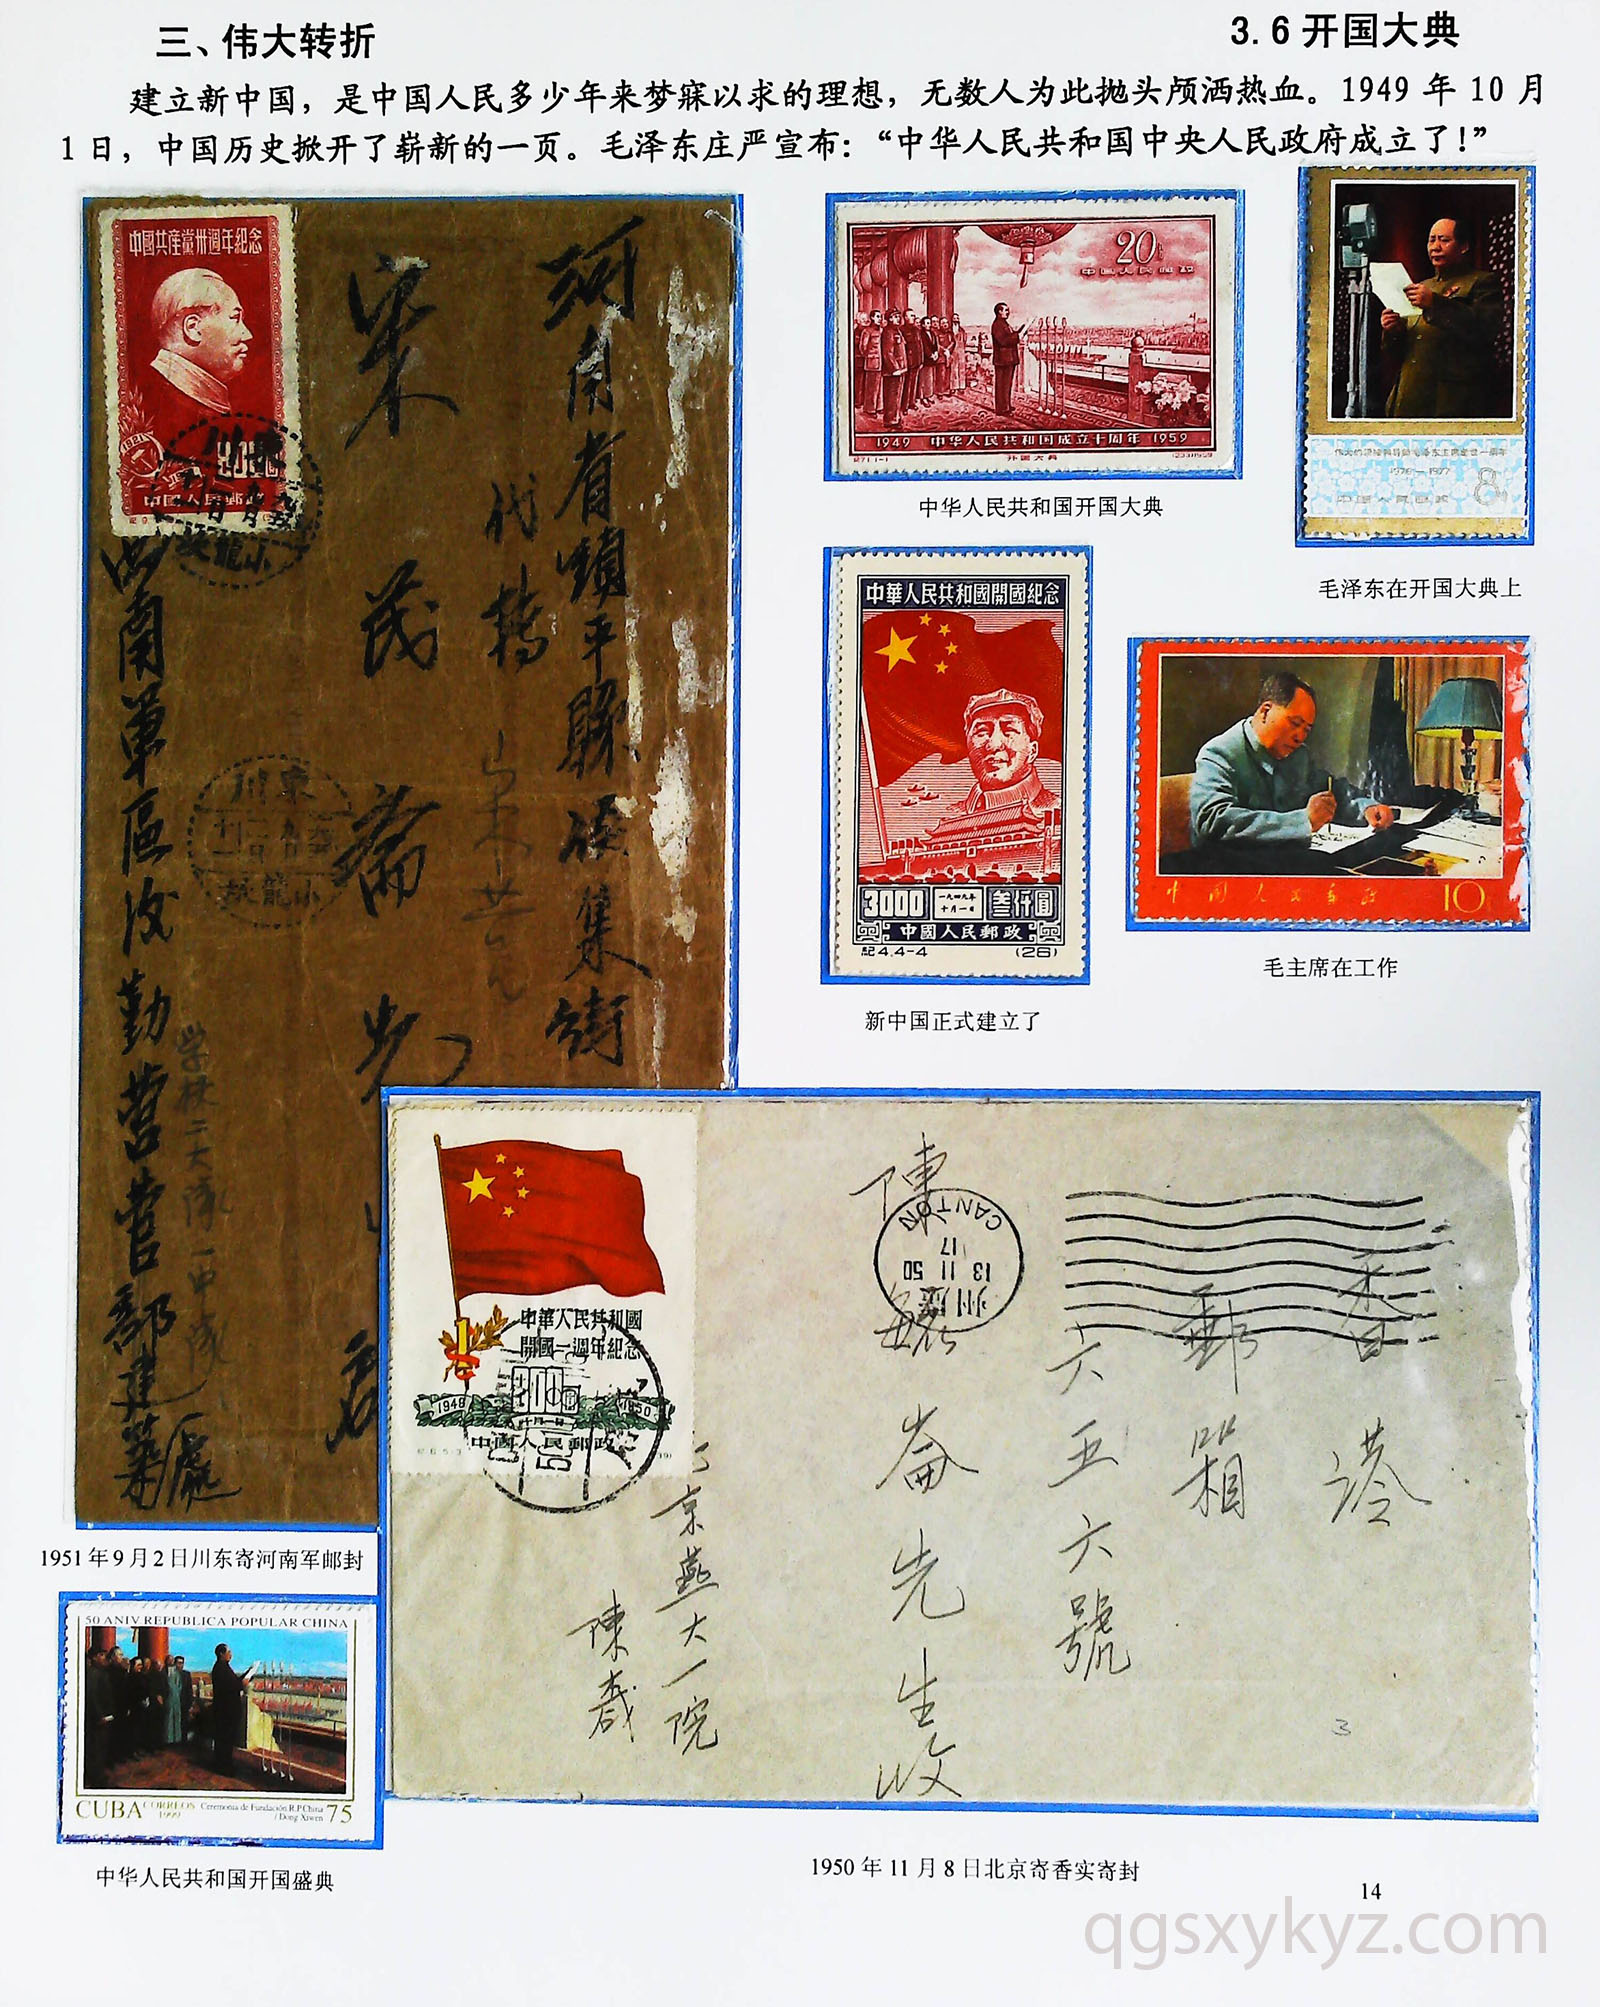 三、伟大转折
3.6开国大典
建立新中国，是中国人民多少年来梦寐以求的理想，无数人为此抛头颅洒热血。1949年10月
1日，中国历史掀开了崭新的一页。毛泽东庄严宣布：“中华人民共和国中央人民政府成立了！”
中國共産黨卅週年紀念
1921
中國人民郵政
河南省鎮平縣
集街
代转
宋
茂
斋
西南軍區後勤營营部建築處
学校二大隊一中隊
東川
小龍坎
1951年9月2日川东寄河南军邮封
20
中国人民邮政
1949 中华人民共和国成立十周年 1959
开国大典
中华人民共和国开国大典
伟大的领袖和导师毛泽东主席逝世一周年
1976—1977
中国人民邮政
8
毛泽东在开国大典上
中華人民共和國開國紀念
3000
一九四九年
十月一日
叁仟圓
中國人民郵政
紀4.4-4
(26)
新中国正式建立了
中国人民邮政
10
毛主席在工作
中華人民共和國
開國一週年紀念
1949
1950
中國人民郵政
CANTON
17
13 11 50
廣州
香港
郵箱
六五六號
陳
崙先生收
京燕大一院
陳
3
1950年11月8日北京寄香实寄封
50 ANIV REPUBLICA POPULAR CHINA
CUBA CORREOS
1999
Ceremonia de Fundación R.P.China
/ Dong Xiwen
75
中华人民共和国开国盛典
14
qgsxykyz.com